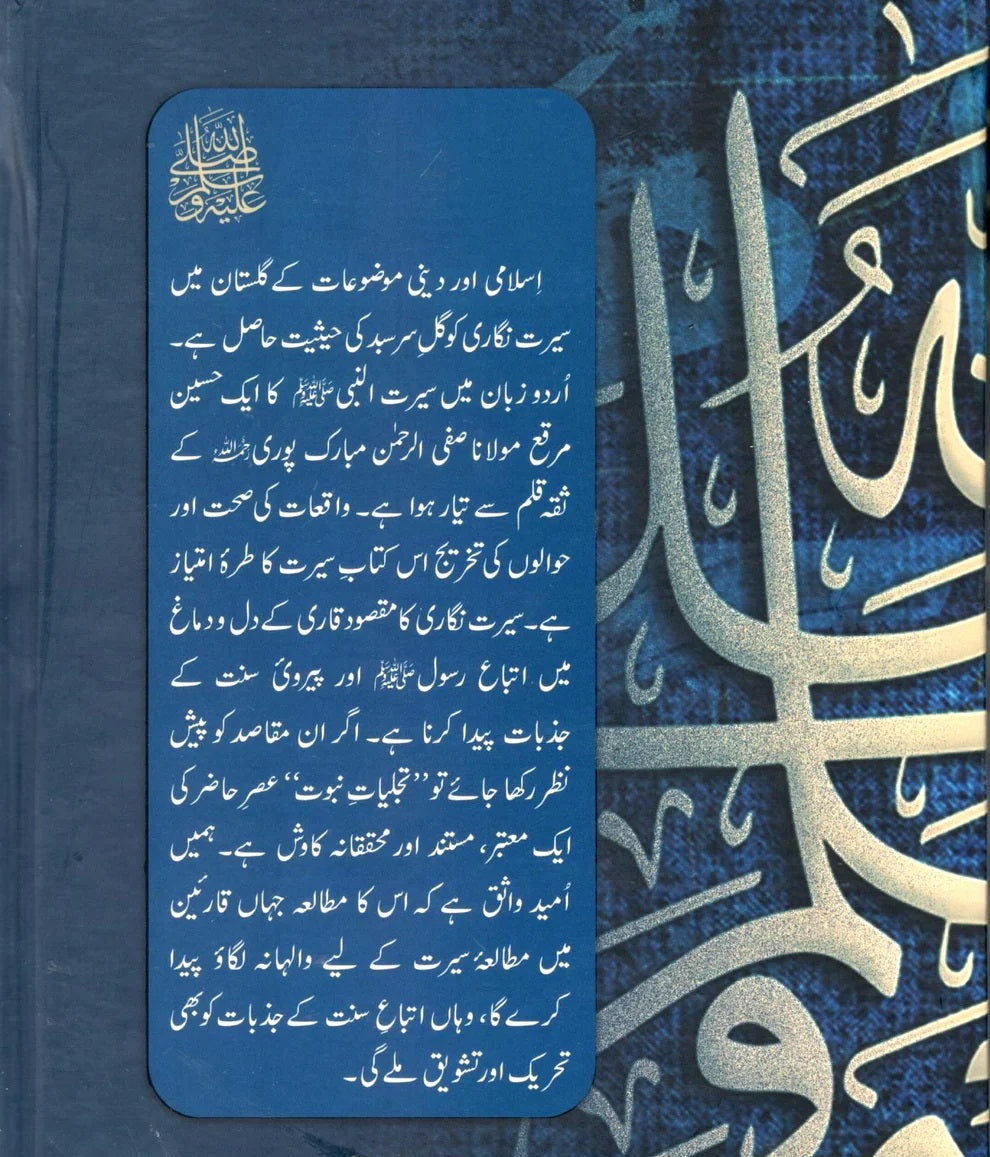 صلى الله عليه وسلم
اِسلامی اور دینی موضوعات کے گلستان میں
سیرت نگاری کو گلِ سرسبد کی حیثیت حاصل ہے۔
اُردو زبان میں سیرت النبی ﷺ کا ایک حسین
مرقع مولانا صفی الرحمٰن مبارک پوری رحمہ اللہ کے
ثقہ قلم سے تیار ہوا ہے۔ واقعات کی صحت اور
حوالوں کی تخریج اس کتابِ سیرت کا طرۂ امتیاز
ہے۔ سیرت نگاری کا مقصود قاری کے دل و دماغ
میں اتباع رسول ﷺ اور پیرویٔ سنت کے
جذبات پیدا کرنا ہے۔ اگر ان مقاصد کو پیش
نظر رکھا جائے تو ’’تجلیاتِ نبوت‘‘ عصرِ حاضر کی
ایک معتبر، مستند اور محققانہ کاوش ہے۔ ہمیں
اُمید واثق ہے کہ اس کا مطالعہ جہاں قارئین
میں مطالعۂ سیرت کے لیے والہانہ لگاؤ پیدا
کرے گا، وہاں اتباعِ سنت کے جذبات کو بھی
تحریک اور تشویق ملے گی۔